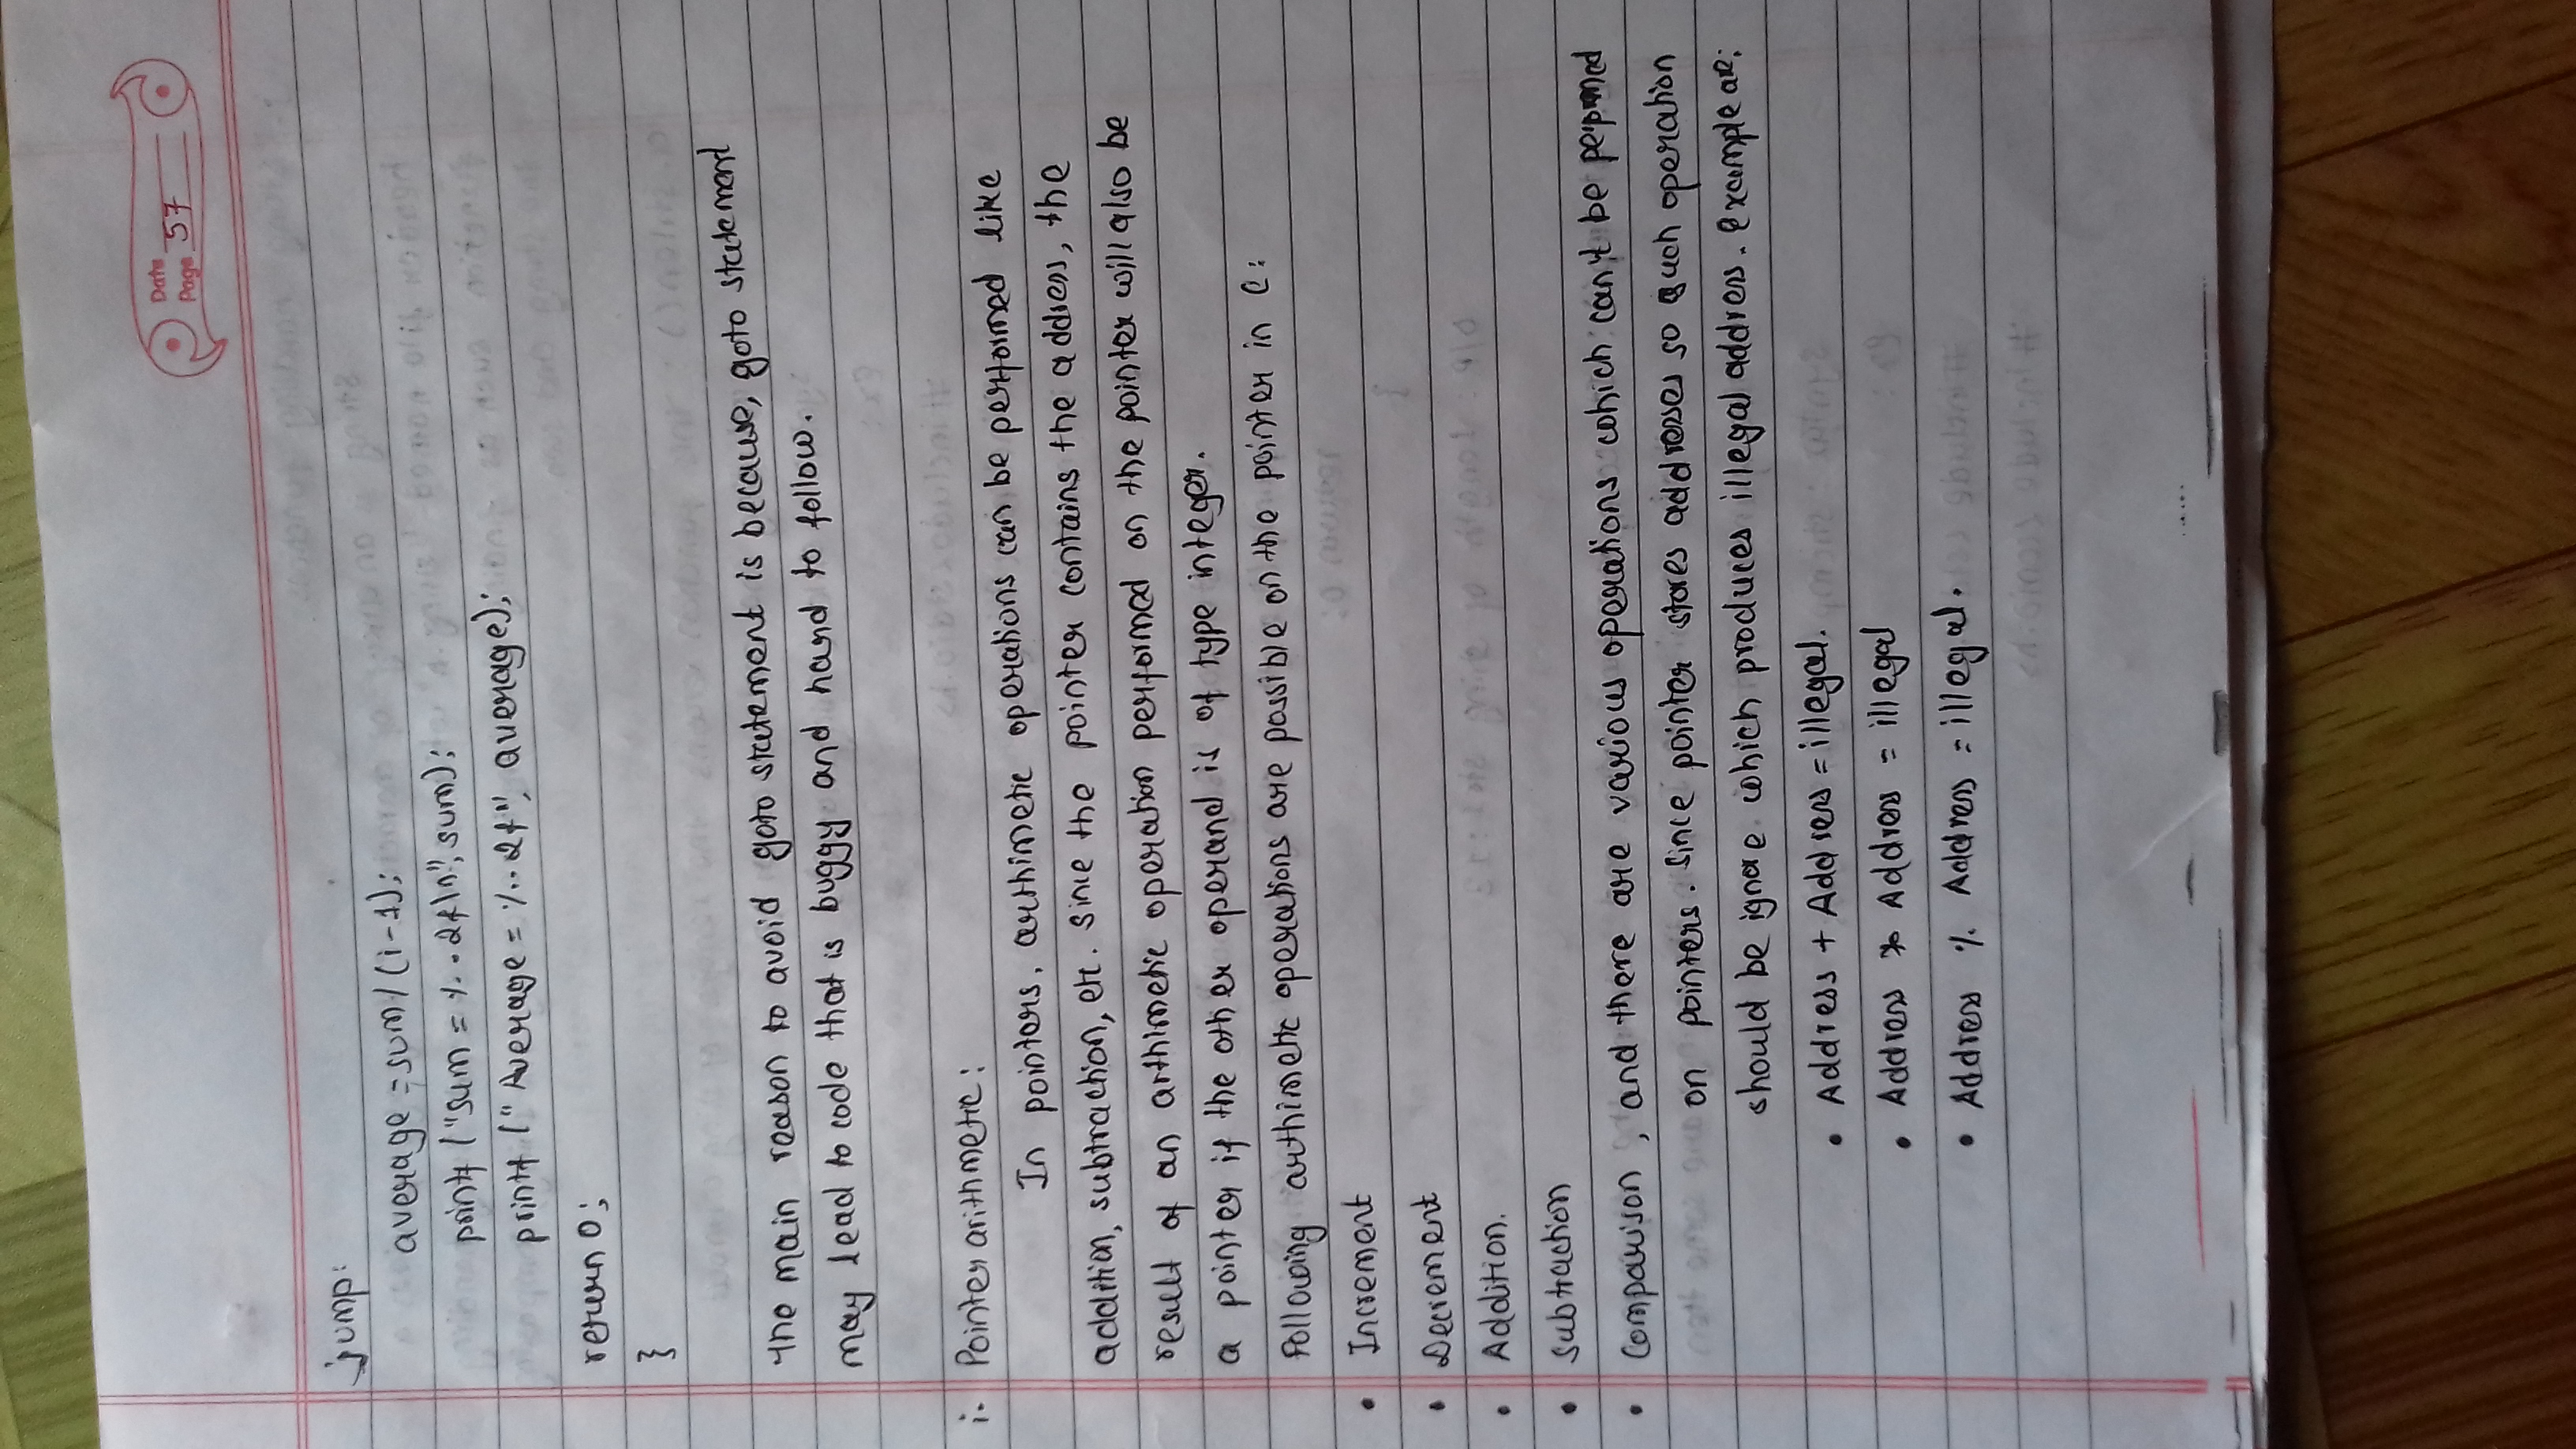 Date
Page 57
jump:
average = sum / (i-1);
printf ("sum = %.2f\n", sum);
printf (" Average = %.2f", average);
return 0;
}
The main reason to avoid goto statement is because, goto statement
may lead to code that is buggy and hard to follow.
i. Pointer arithmetic:
In pointers, arthimetic operations can be performed like
addition, subtraction, etc. since the pointer contains the address, the
result of an arthimetic operation performed on the pointer will also be
a pointer if the other operand is of type integer.
Following arthimetic operations are possible on the pointer in C:
• Increment
• Decrement
• Addition.
• subtraction
• Comparison, and there are various operations which can't be performed
on pointers. Since pointer stores addresses so such operation
should be ignore which produces illegal address. example are:
• Address + Address = illegal.
• Address * Address = illegal
• Address % Address = illegal.